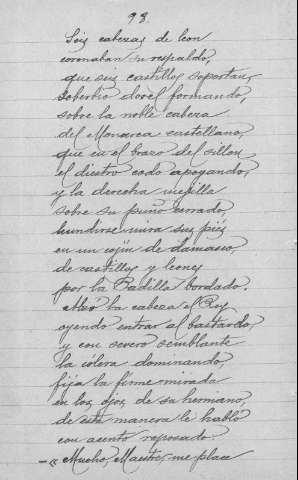 93.
Seis cabezas de leon
coronaban su respaldo,
que seis castillos soportan,
soberbio dosel formando,
sobre la noble cabeza
del Monarca castellano,
que en el brazo del sillon
el diestro codo apoyando,
y la derecha mejilla
sobre su puño cerrado,
hundirse mira sus piés
en un cojin de damasco,
de castillos y leones
por la Padilla bordado.
Alzó la cabeza el Rey
oyendo entrar al bastardo,
y con severo semblante
la cólera dominando,
fija la firme mirada
en los ojos de su hermano,
de esta manera le habló
con acento reposado:
—"Mucho, Maestre, me place